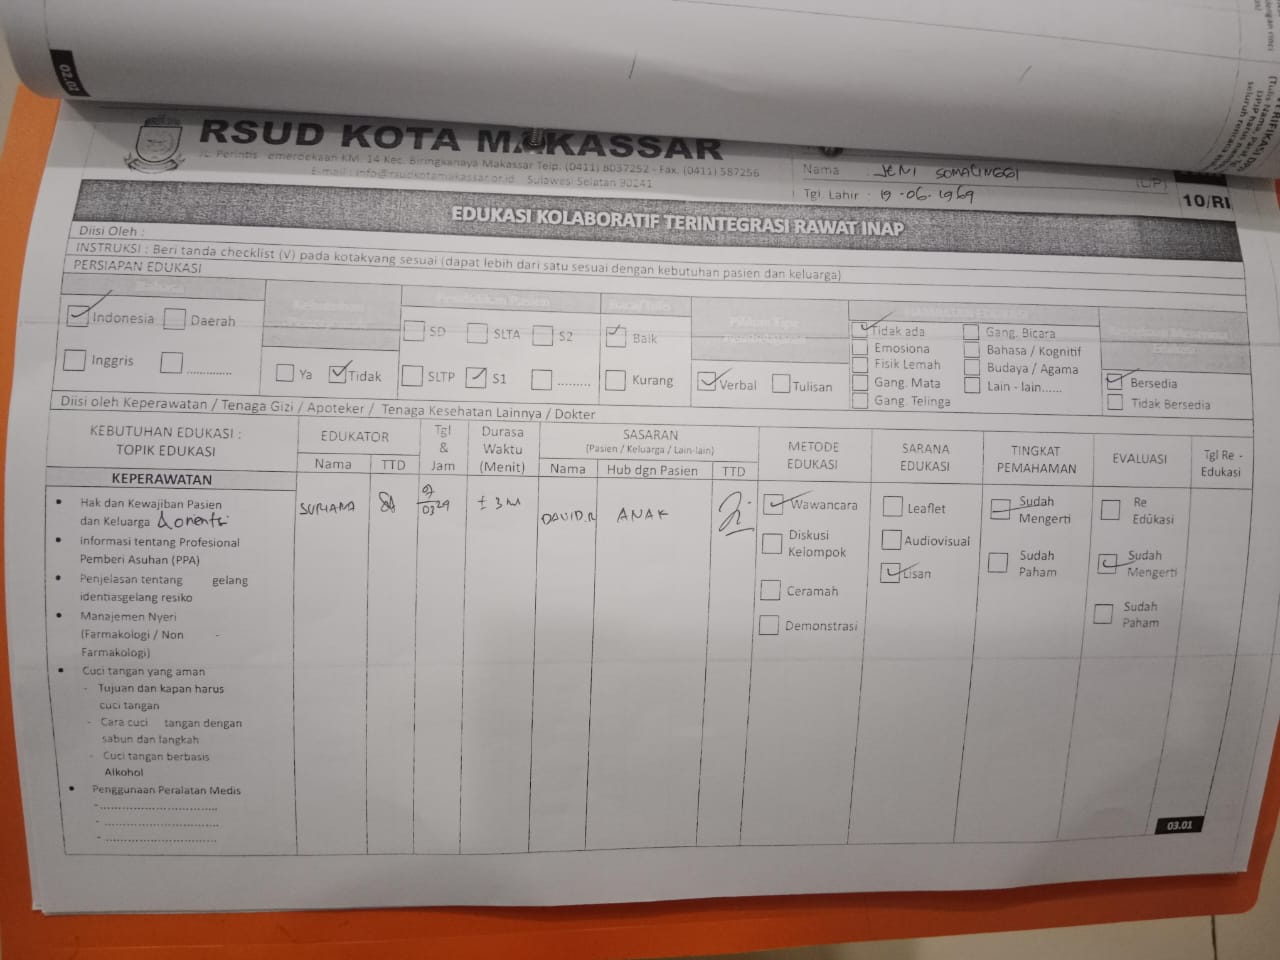 02.02
RSUD KOTA MAKASSAR
JL. Perintis emerdekaan KM. 14 Kec. Biringkanaya Makassar Telp. (0411) 8037252 - Fax. (0411) 587256
E-mail : info@rsudkotamakassar.or.id Sulawesi Selatan 90241
Nama : JENI SOMALINGGI
(L/P)
Tgl. Lahir : 19-06-1969
10/RI
EDUKASI KOLABORATIF TERINTEGRASI RAWAT INAP
Diisi Oleh :
INSTRUKSI : Beri tanda checklist (V) pada kotakyang sesuai (dapat lebih dari satu sesuai dengan kebutuhan pasien dan keluarga)
PERSIAPAN EDUKASI
Bahasa
Pendidikan Pasien
Baca/Tulis
Indonesia Daerah
Inggris ............
Ya Tidak
SD SLTA S2
SLTP S1 .........
Baik
Kurang
Verbal Tulisan
Tidak ada Gang. Bicara
Emosiona Bahasa / Kognitif
Fisik Lemah Budaya / Agama
Gang. Mata Lain - lain......
Gang. Telinga
Bersedia
Tidak Bersedia
Diisi oleh Keperawatan / Tenaga Gizi / Apoteker / Tenaga Kesehatan Lainnya / Dokter
KEBUTUHAN EDUKASI :
TOPIK EDUKASI
EDUKATOR
Nama TTD
Tgl
&
Jam
Durasa
Waktu
(Menit)
SASARAN
(Pasien / Keluarga / Lain-lain)
Nama Hub dgn Pasien TTD
METODE
EDUKASI
SARANA
EDUKASI
TINGKAT
PEMAHAMAN
EVALUASI
Tgl Re -
Edukasi
KEPERAWATAN
• Hak dan Kewajiban Pasien
dan Keluarga
• informasi tentang Profesional
Pemberi Asuhan (PPA)
• Penjelasan tentang gelang
identiasgelang resiko
• Manajemen Nyeri
(Farmakologi / Non -
Farmakologi)
• Cuci tangan yang aman
- Tujuan dan kapan harus
cuci tangan
- Cara cuci tangan dengan
sabun dan langkah
- Cuci tangan berbasis
Alkohol
• Penggunaan Peralatan Medis
-..............................
- .............................
- ............................
SURIANA
± 3 M
DAVID.R
ANAK
Wawancara
Diskusi
Kelompok
Ceramah
Demonstrasi
Leaflet
Audiovisual
Lisan
Sudah
Mengerti
Sudah
Paham
Re
Edukasi
Sudah
Mengerti
Sudah
Paham
03.01